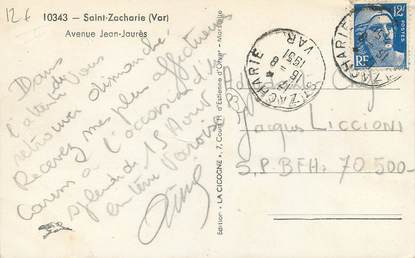 12 €
10343 – Saint-Zacharie (Var)
Avenue Jean-Jaurès
Dans
l'attente de vous
retrouver dimanche
Recevez mes plus affectueuses
à l'occasion d'un
splendide 15 Août
en terre Varoise
Edition « LA CIGOGNE », 7, Cours H. d'Estienne d'Orves - Marseille
ST ZACHARIE
VAR
16 - 8
1951
12F
POSTES
RF
ZACHARIE
Jacques LICCIONI
S.P. BFH. 70 500